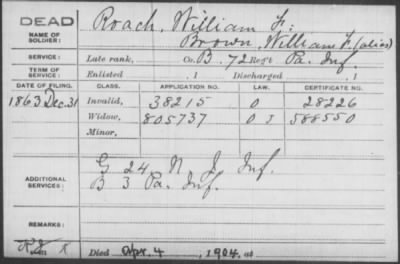 DEAD
NAME OF SOLDIER:
Roach, William F.
Brown, William F. (alias)
SERVICE: Late rank, Co. B. 72 Reg't Pa. Inf.
TERM OF SERVICE: Enlisted , 1 Discharged , 1
DATE OF FILING. CLASS. APPLICATION NO. LAW. CERTIFICATE NO.
1863 Dec. 31 Invalid, 38215 O 28226
Widow, 805737 O J 588550
Minor,
ADDITIONAL SERVICES:
G 24 N J Inf.
B 3 Pa. Inf.
REMARKS:
Died Apr. 4, 1904, at